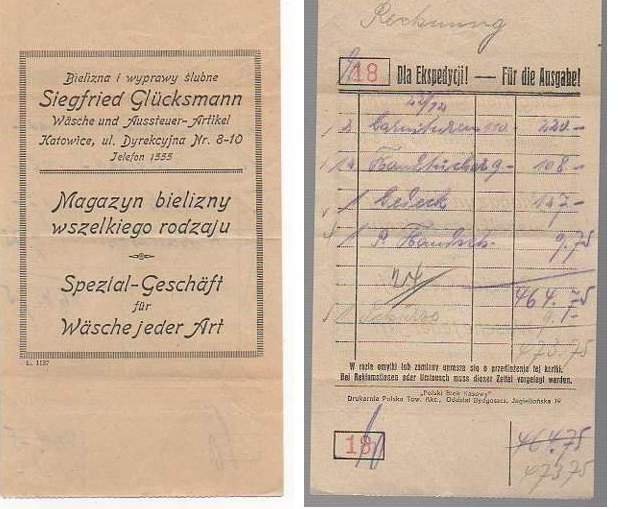 Bielizna i wyprawy ślubne
Siegfried Glücksmann
Wäsche und Aussteuer-Artikel
Katowice, ul. Dyrekcyjna Nr. 8-10
Telefon 1555
Magazyn bielizny
wszelkiego rodzaju
Spezial-Geschäft
für
Wäsche jeder Art
L. 1127
Rechnung
18 Dla Ekspedycji! — Für die Ausgabe!
22/12
2 110 220.-
12 Handtücher 9.- 108.-
1 Gedeck 127.-
1 P. Handsch. 9.75
464.75
1 9.-
473.75
W razie omyłki lub zamiany uprasza się o przedłożenie tej kartki.
Bei Reklamationen oder Umtausch muss dieser Zettel vorgelegt werden.
"Polski Blok Kasowy"
Drukarnia Polska Tow. Akc., Oddział Bydgoszcz, Jagiellońska 19
18 464.75
473.75